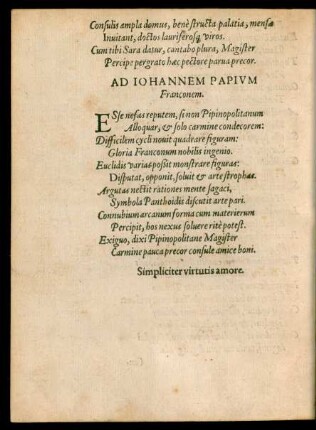 Consulis ampla domus, benè structa palatia, mensæ
Inuitant, doctos lauriferosq́; viros.
Cum tibi Sara datur, cantabo plura, Magister
Percipe pergrato hæc pectore parua precor.
AD IOHANNEM PAPIVM
Franconem.
ESse nefas reputem, si non Pipinopolitanum
Alloquar, & solo carmine condecorem:
Difficilem cycli nouit quadrare figuram:
Gloria Franconum nobilis ingenio.
Euclidis varias poßit monstrare figuras:
Disputat, opponit, soluit & arte strophas.
Argutas nectit rationes mente sagaci,
Symbola Panthoidis discutit arte pari.
Connubium arcanum forma cum materierum
Percipit, hos nexus soluere ritè potest.
Exiguo, dixi Pipinopolitane Magister
Carmine pauca precor consule amice boni.
Simpliciter virtutis amore.